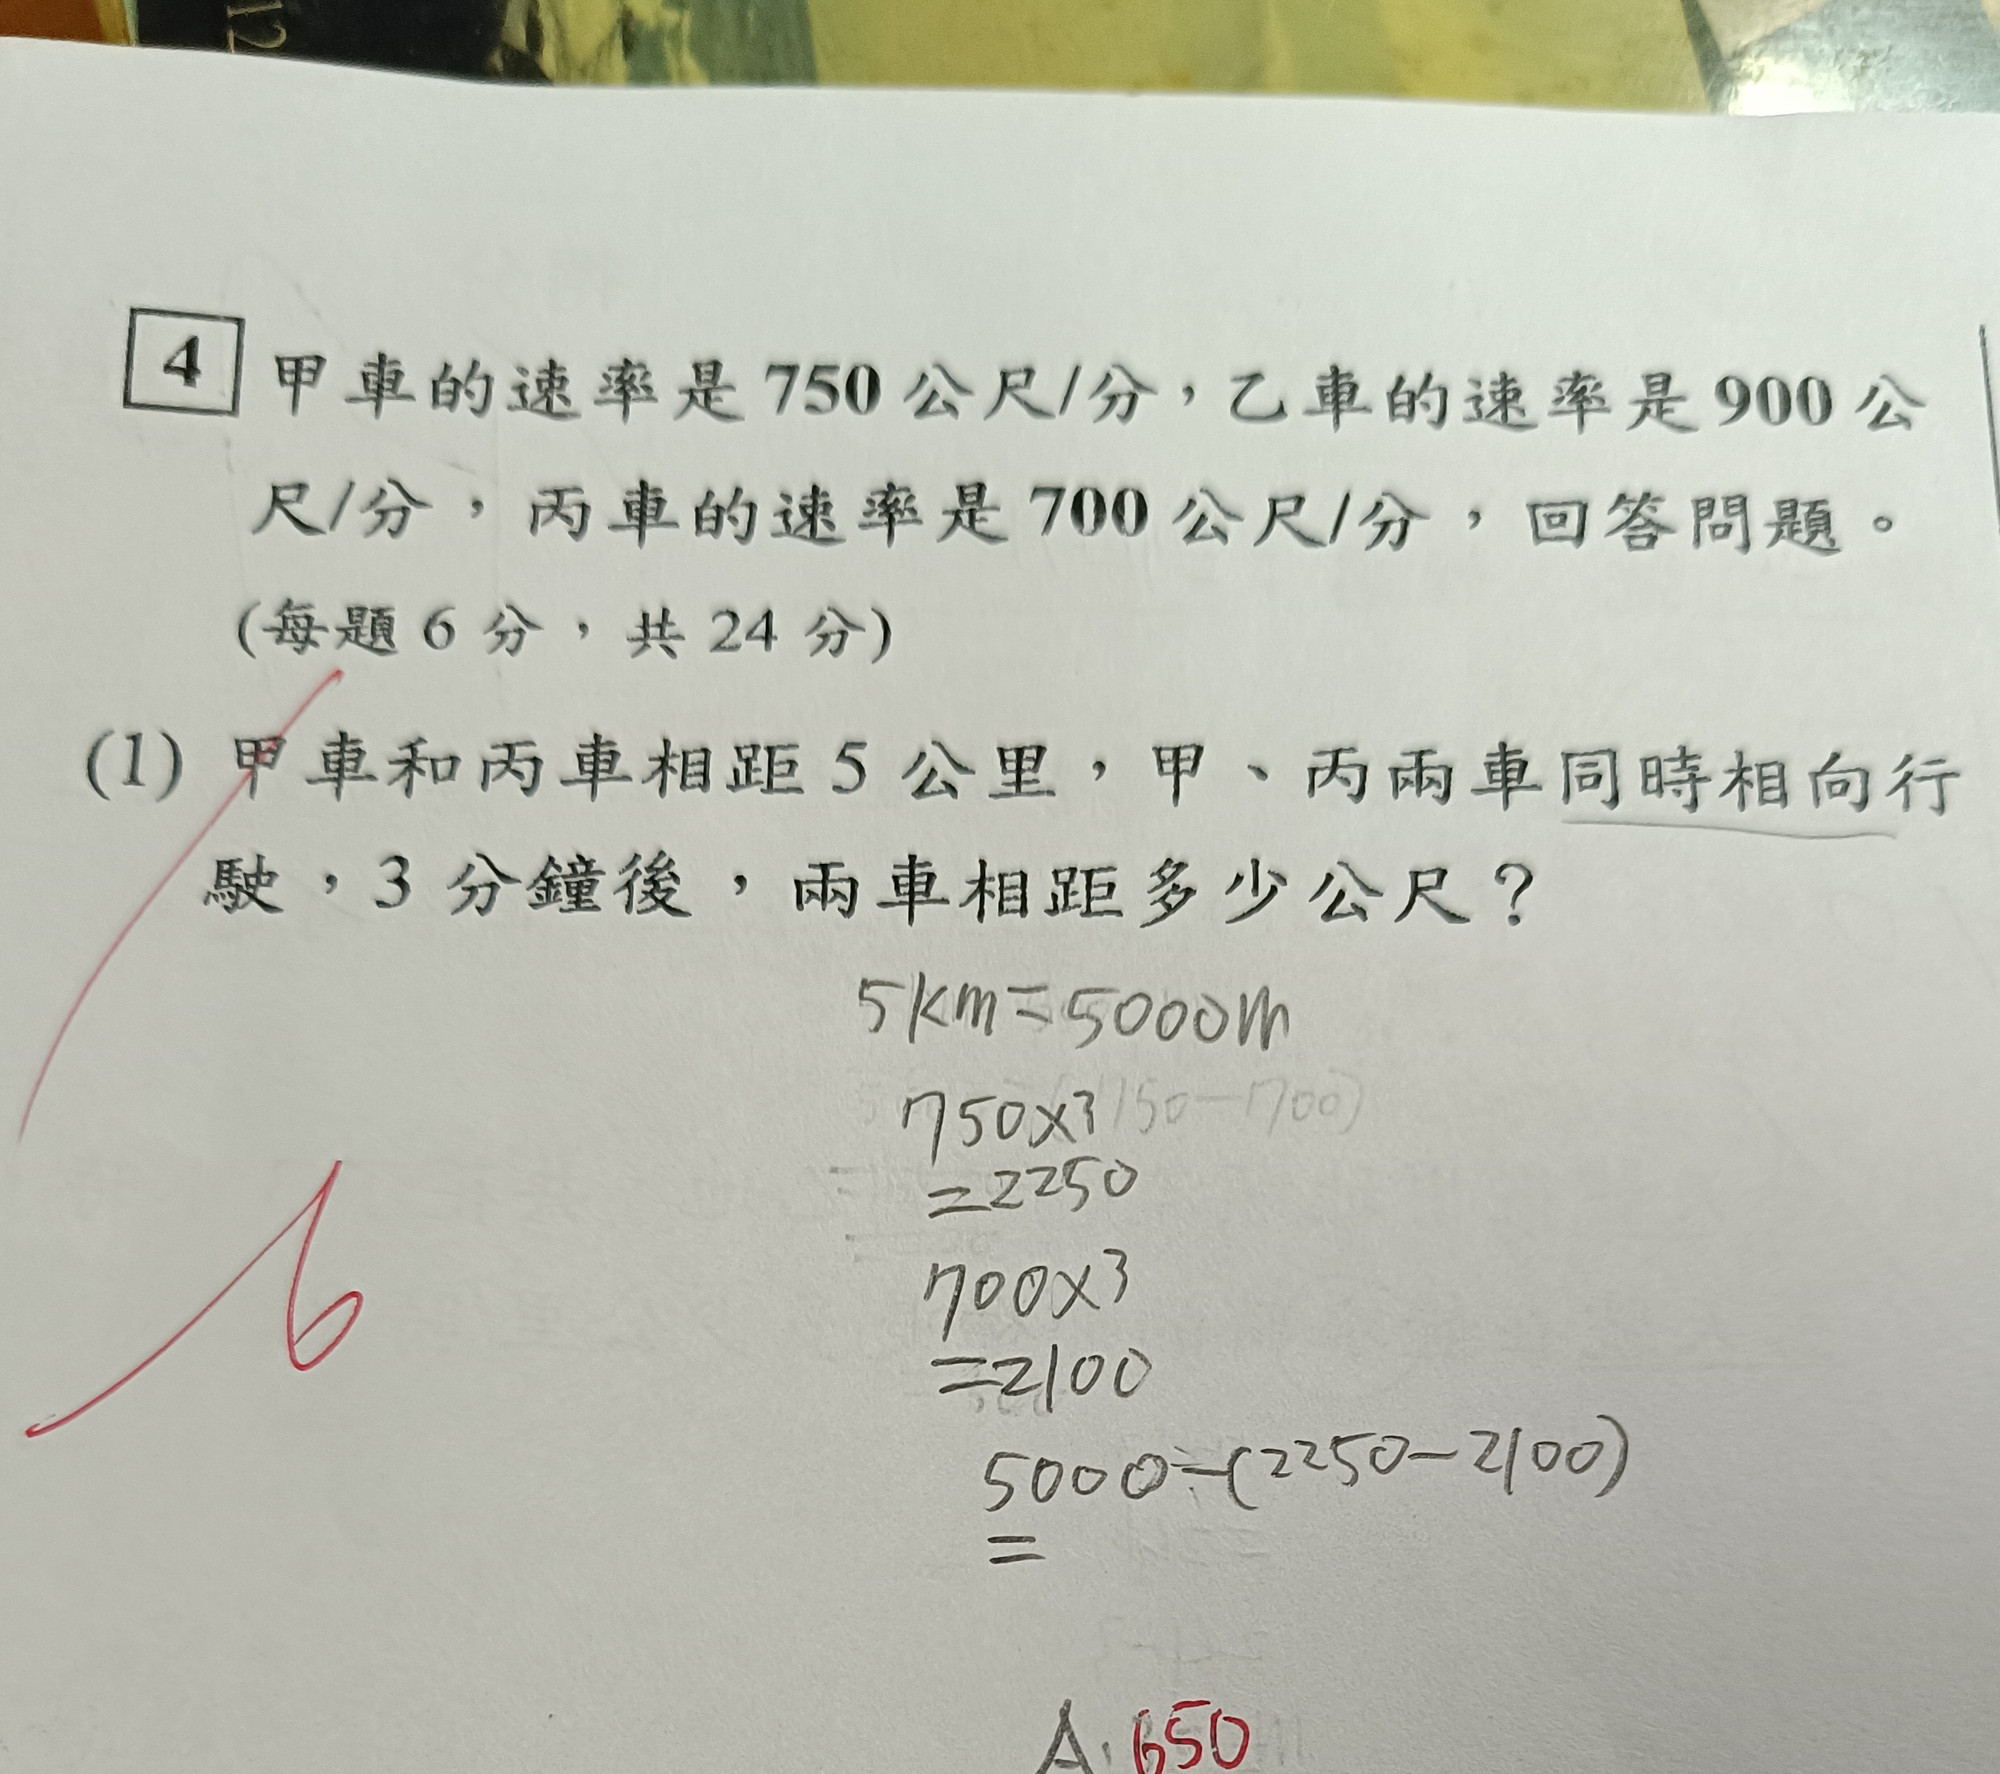 12
4 甲車的速率是 750 公尺/分，乙車的速率是 900 公
尺/分，丙車的速率是 700 公尺/分，回答問題。
(每題 6 分，共 24 分)
(1) 甲車和丙車相距 5 公里，甲、丙兩車同時相向行
駛，3 分鐘後，兩車相距多少公尺？
5km=5000m
750×3
=2250
700×3
=2100
5000÷(2250-2100)
=
6
A. 650